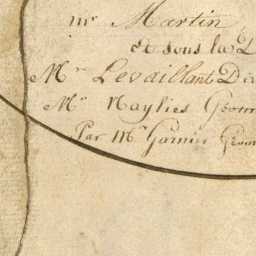 mr Martin
et sous la D
Mr Levaillant Di
Mr Naylies Géom
Par Mr Garnier Géom